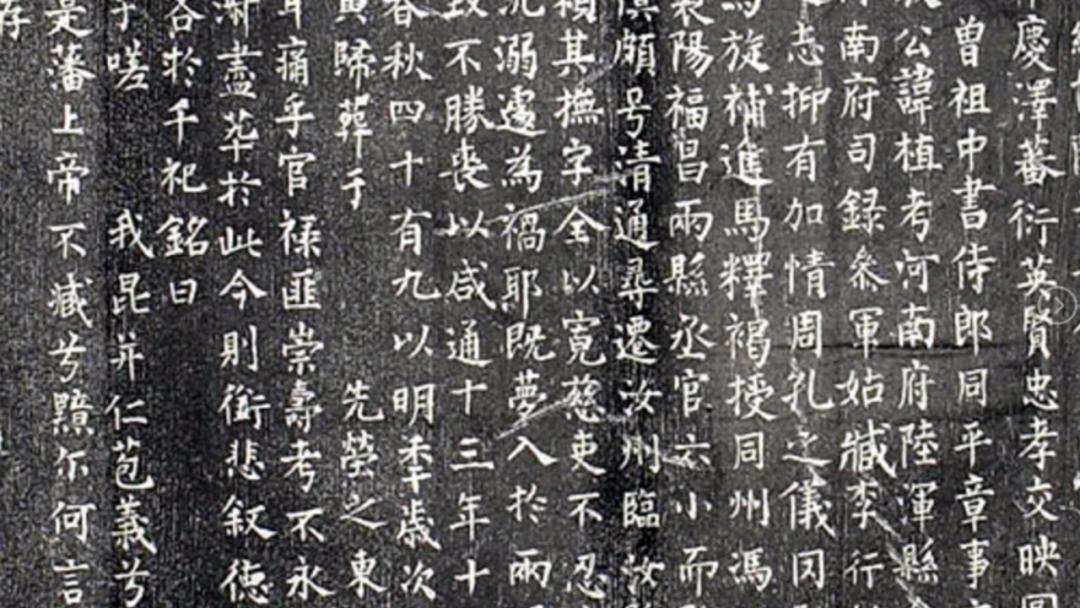 慶澤蕃衍英賢忠孝交映
曾祖中書侍郎同平章事
公諱植考河南府陸渾縣
南府司録叅軍姑臧李行
志抑有加情周孔之儀罔
旋補進馬釋褐授同州馮
陽福昌兩縣丞官六小而
頗号清通尋遷汝州臨汝
其撫字全以寬慈吏不忍
溺邊為禍耶既夢入於兩
不勝喪以咸通十三年十
春秋四十有九以明季歲次
歸葬于 先塋之東
痛乎官禄匪崇壽考不永
漸盡苹於此今則銜悲叙德
於千祀銘曰
嗟 我昆弁仁苞義兮
是藩上帝不臧兮黯尓何言